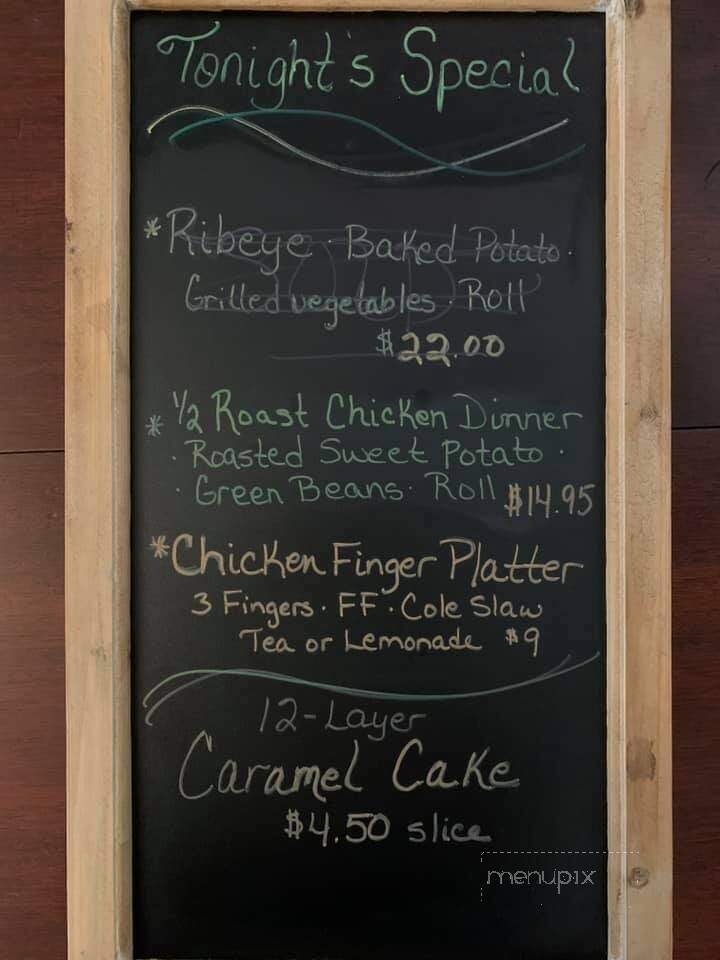 Tonight's Special
* Ribeye · Baked Potato ·
Grilled vegetables · Roll
$22.00
* 1/2 Roast Chicken Dinner
· Roasted Sweet Potato ·
· Green Beans · Roll $14.95
* Chicken Finger Platter
3 Fingers · FF · Cole Slaw
Tea or Lemonade $9
12-Layer
Caramel Cake
$4.50 slice
menupix